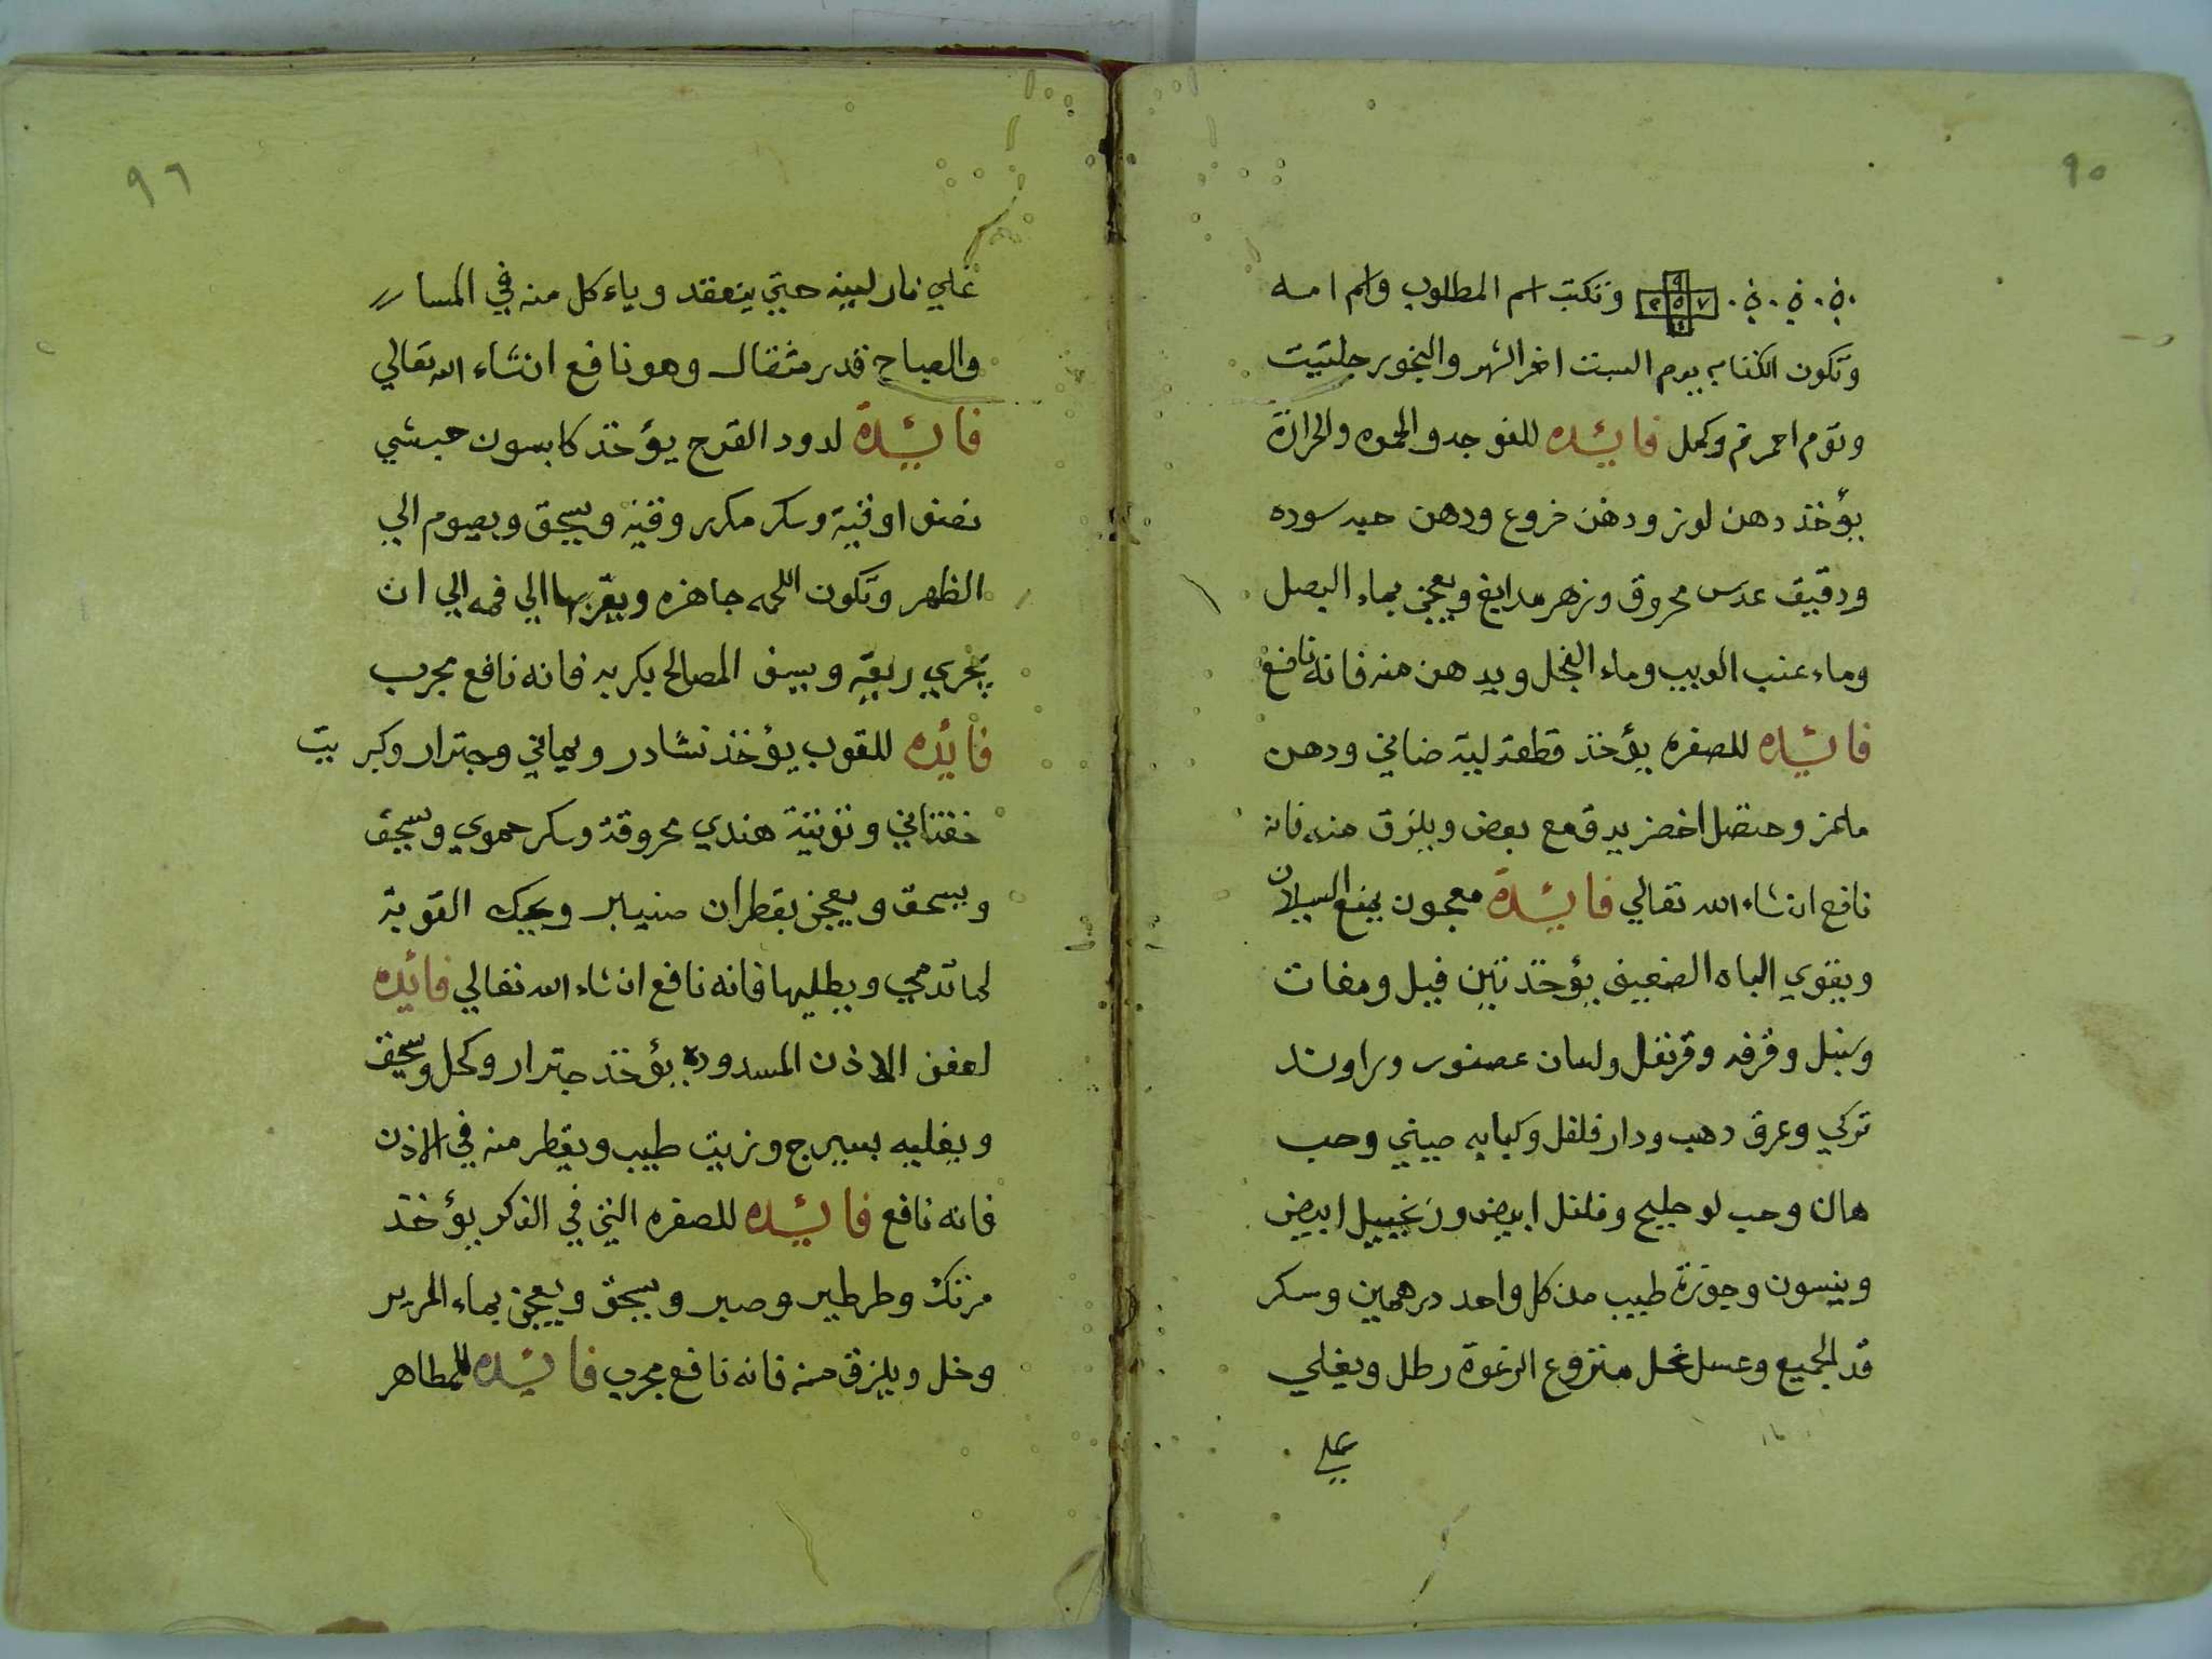 ٩٥
وتكتب اسم المطلوب واسم امه
وتكون الكتابه يوم السبت اخر الشهر والبخور حلتيت
وتوم احمر تم وكمل فائده للفوجد والحمره والحرازة
يؤخذ دهن لوز ودهن خروع ودهن حبه سوده
ودقيق عدس محروق وزهر مدايغ ويعجن بماء البصل
وماء عنب الديب وماء الفجل ويدهن منه فانه نافع
فائده للصفره يؤخذ قطعة لية ضاني ودهن
وحنضل اخضر يدق مع بعض ويلزق منه فانه
نافع انشاء الله تعالي فائدة معجون يمنع السيلان
ويقوي الباه الضعيف يؤخذ تين فيل ومغات
وسنبل وقرفه وقرنفل ولسان عصفور وراوند
تركي وعرق دهب ودار فلفل وكبابه صيني وحب
هان وحب لوجليح وفلفل ابيض وزنجبيل ابيض
وينسون وجوزة طيب من كل واحد درهمين وسكر
قد الجميع وعسل نحل منزوع الرغوة رطل ويغلي
علي
٩٦
علي نار لينه حتي ينعقد وياءكل منه في المسا
والصباح قدر مثقال وهو نافع انشاء الله تعالي
فائيدة لدود القرح يؤخذ كابسون حبشي
نصف اوقية وسكر مكرر وقيه ويسحق ويصوم الي
الظهر وتكون اللحمه جاهزه ويقربها الي فمه الي ان
يجري ريقه ويسف المصالح بكربه فانه نافع مجرب
فائده للقوب يؤخذ نشادر ويماني وجنزار وكبريت
خفتاني وتوتية هندي محروقة وسكر حموي ويسحق
ويسحق ويعجن بقطران صنيبر ويحك القوبة
لما تدمي ويطليها فانه نافع انشاء الله تعالي فائده
لعفن الاذن المسدوده يؤخذ جنزار وكحل ويسحق
ويغليه بسيرج وزيت طيب ويقطر منه في الاذن
فانه نافع فائيده للصفره التي في الذكر يؤخذ
مرتك وطرطير وصبر ويسحق ويعجن بماء المرير
وخل ويلزق منه فانه نافع مجرب فائيده للمطاهر